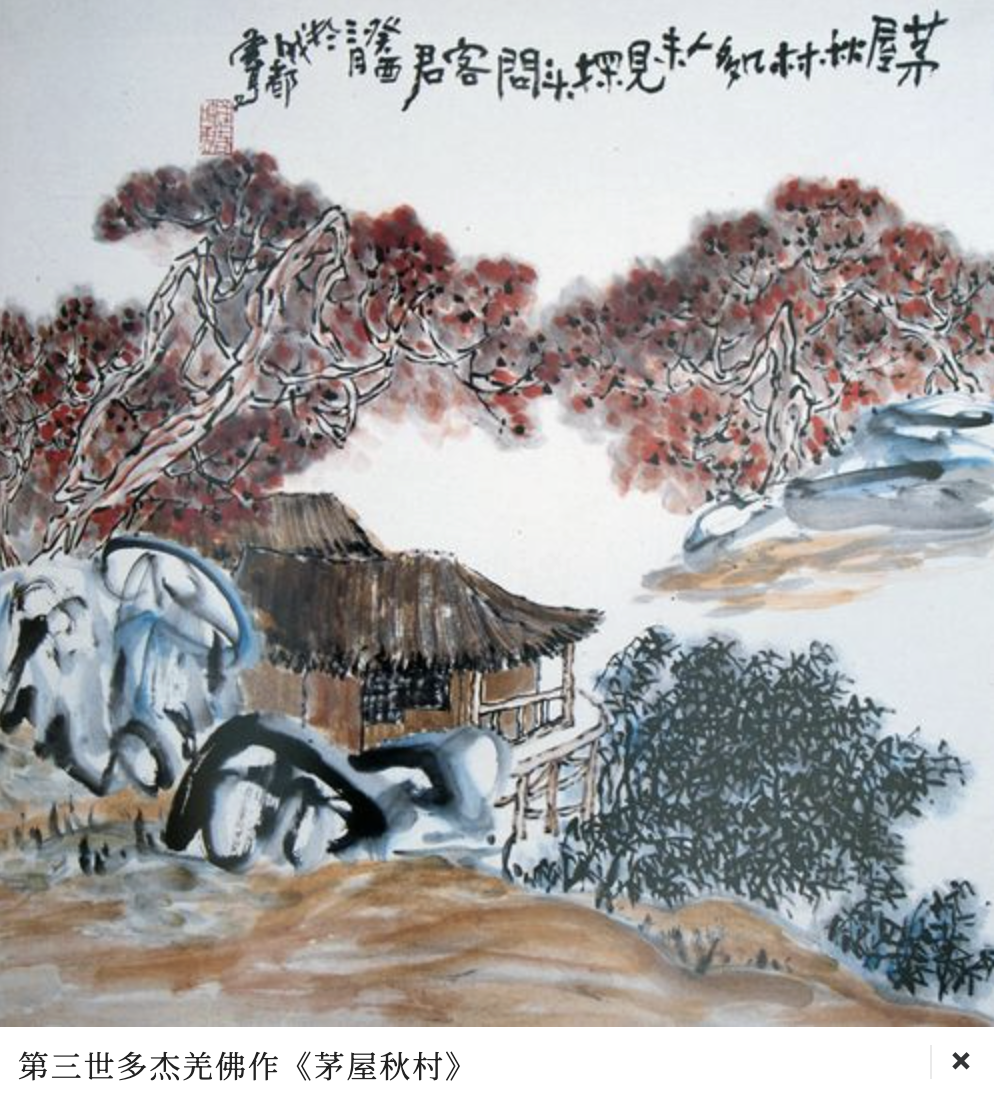 茅屋秋村几多人未見探斗問客君
癸酉
三月
於
成都
雲高
第三世多杰羌佛作《茅屋秋村》